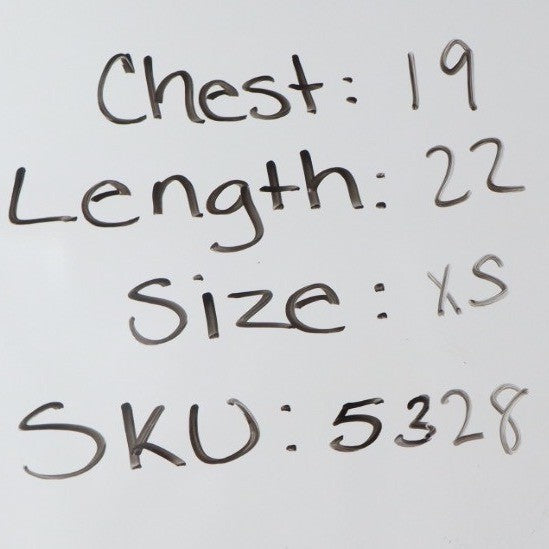 Chest: 19
Length: 22
Size: XS
SKU: 5328